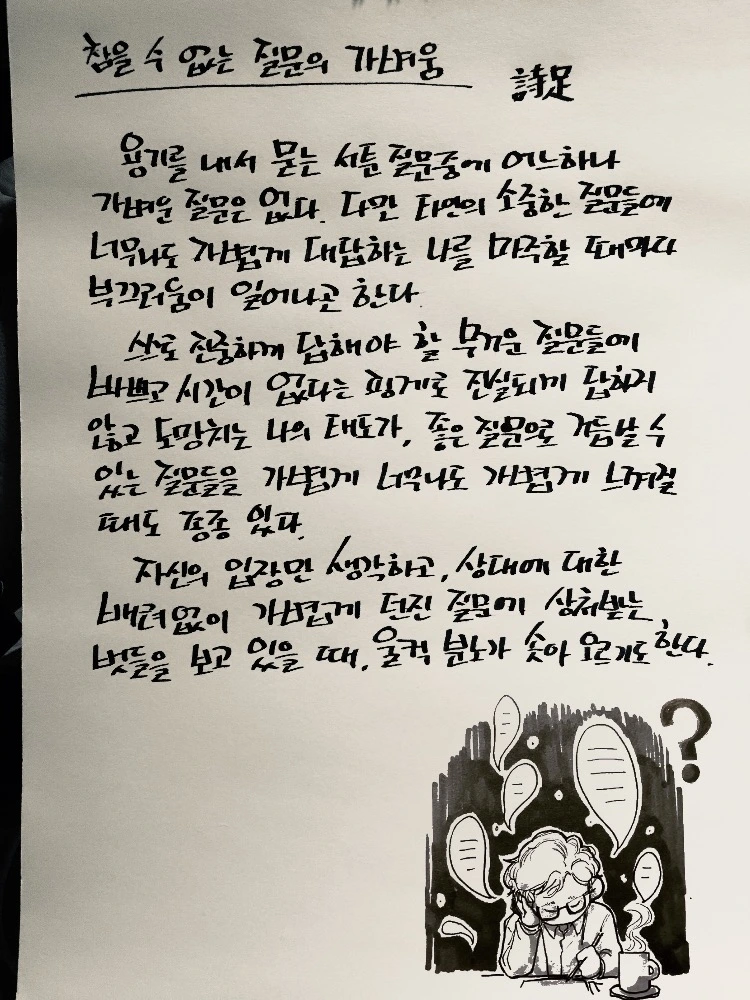 참을 수 없는 질문의 가벼움 詩足
용기를 내서 묻는 서툰 질문중에 어느하나
가벼운 질문은 없다. 다만 타인의 소중한 질문들에
너무나도 가볍게 대답하는 나를 마주할 때마다
부끄러움이 일어나곤 한다.
서로 진중하게 답해야 할 무거운 질문들에
바쁘고 시간이 없다는 핑계로 진실되게 답하지
않고 도망치는 나의 태도가, 좋은 질문으로 거듭날 수
있는 질문들을 가볍게 너무나도 가볍게 느껴질
때도 종종 있다.
자신의 입장만 생각하고, 상대에 대한
배려없이 가볍게 던진 질문에 상처받는
벗들을 보고 있을 때, 울컥 분노가 솟아 오르기도 한다.
?